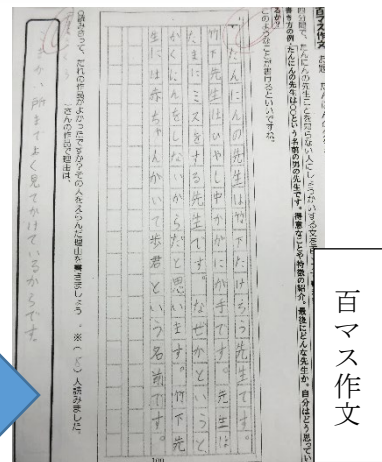 百マス作文
四分間で、たんにんの先生のことを知らない人にしょうかいする文を書
書き方の例「たんにんの先生は○○という名前の男の先生です。得意なことや特徴の紹介。最後にどんな先生か。自分はどう思ってい
るか?
このようなことが書けるといいですね。
たんにんの先生は竹下たけろう先生です。
竹下先生はひやし中かかにが手です。先生は
たまにミスをする先生です。なぜかというと、
かくにんをしないからだと思います。竹下先
生には赤ちゃんがいて歩君という名前です。
100
読みあって、だれの作品がよかったですか?その人をえらんだ理由を書きましょう。※(8)人読みました。
さんの作品で理由は、
こまかい所まてよく見てかけているからです。
百マス作文